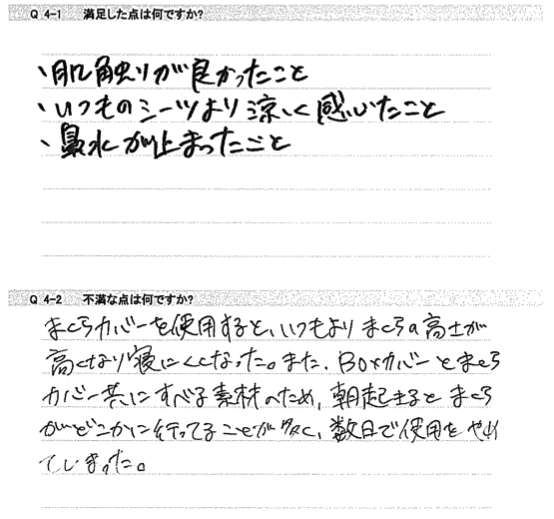 Q 4-1 満足した点は何ですか?
、肌触りが良かったこと
、いつものシーツより涼しく感じたこと
、鼻水が止まったこと
Q 4-2 不満な点は何ですか?
まくらカバーを使用すると、いつもよりまくらの高さが
高くなり寝にくくなった。また、Boxカバーとまくら
カバー共にすべる素材のため、朝起きるとまくら
がどこかに行ってることが多く、数日で使用をやめ
てしまった。